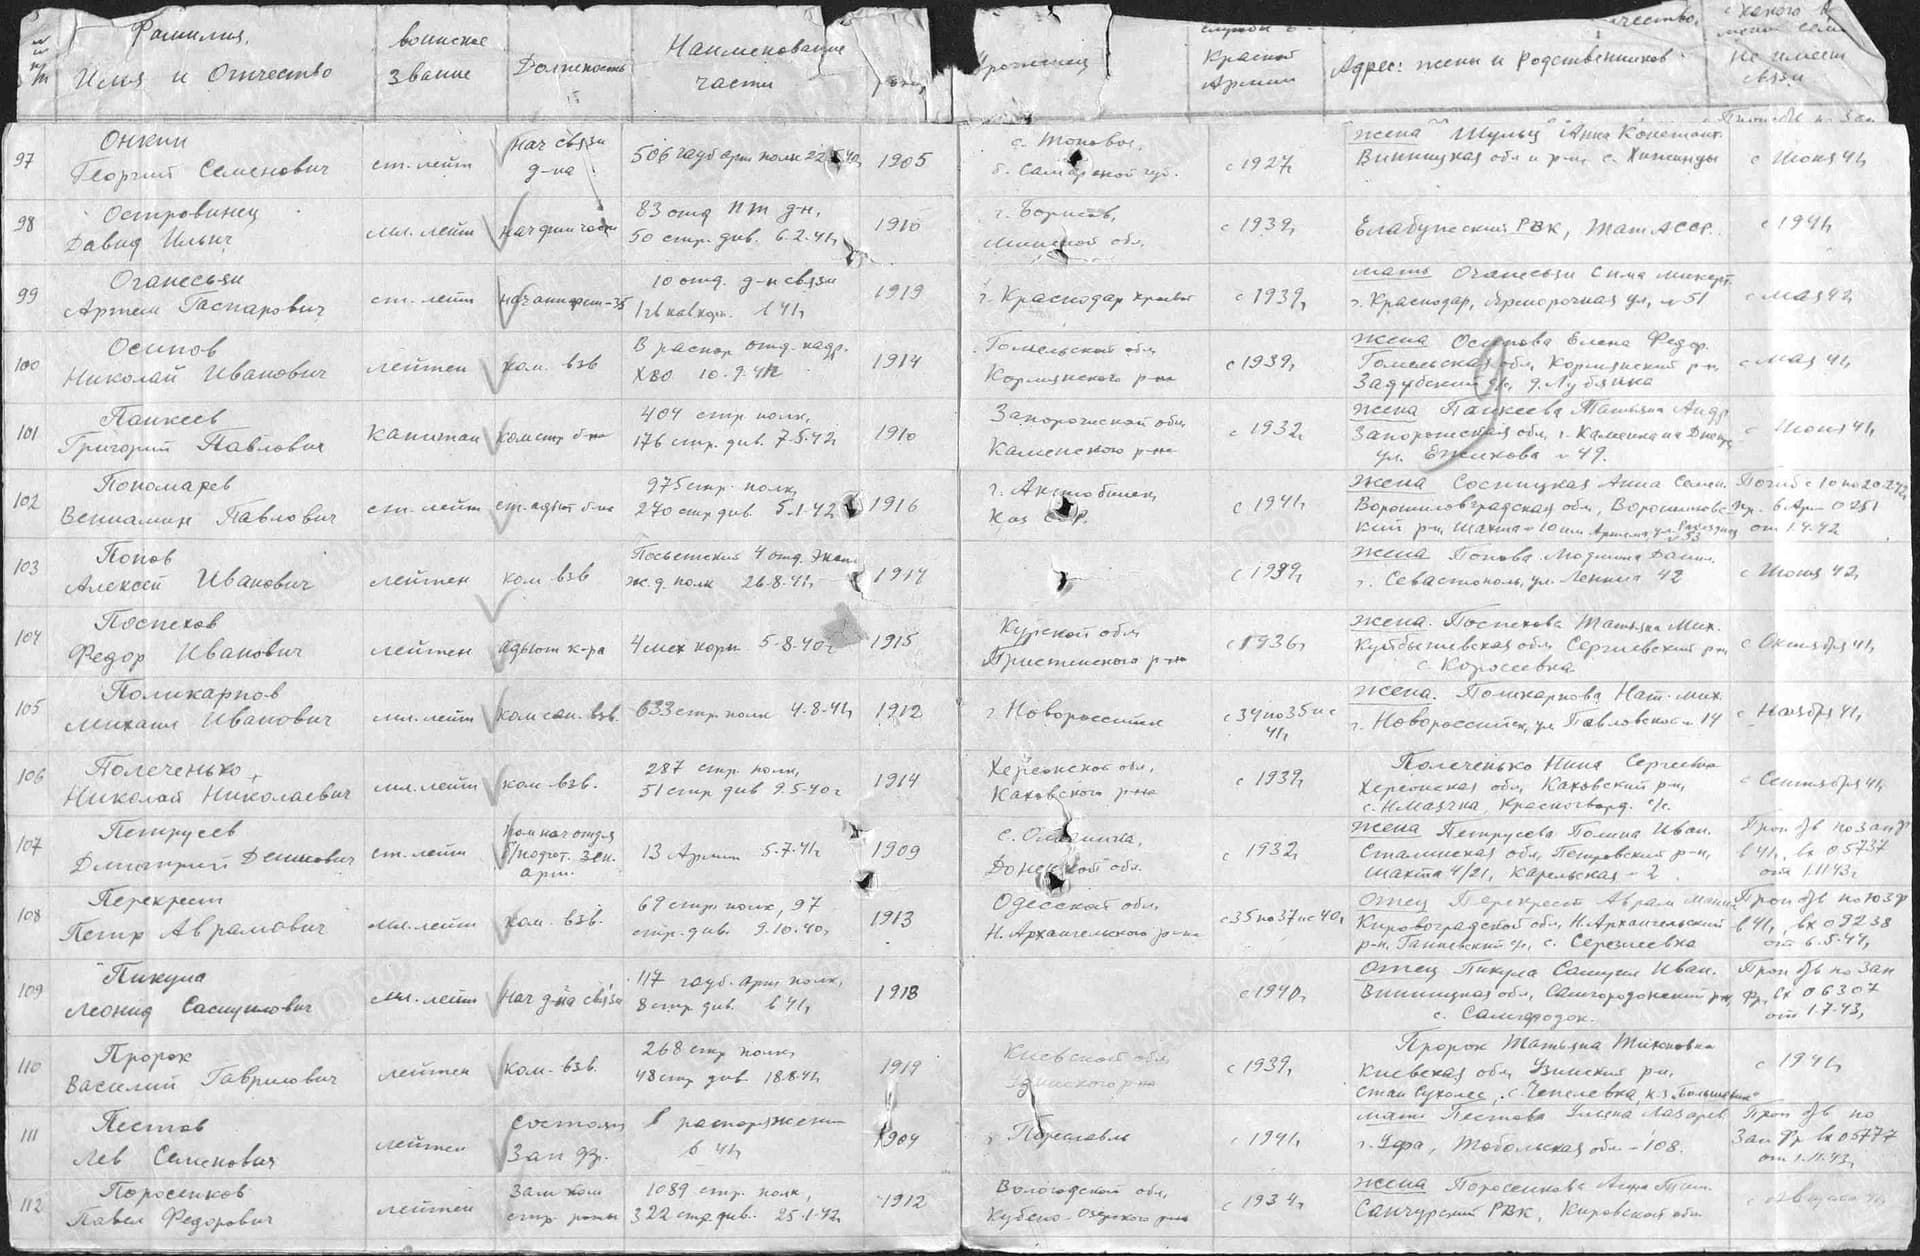 Фамилия,
Имя и Отчество
воинское
звание
Должность
Наименование
части
Урожинец
службы в
Красной
Армии
Адрес: жены и родственников
с какого
не имеет
связи
97
Онкин
Георгий Семенович
ст. лейт
нач связи
д-на
506 гауб арт полк
1905
б. Самарской губ.
с 1927г
жена Шульц Анна Констант.
Винницкая обл и р-н, с.
с Июня 41г
98
Островинец
Давид Ильич
мл. лейт
нач фин части
83 отд ПТ д-н,
50 стр. див. 6.2.41г
1910
г. Борисов,
Минской обл.
с 1939г
Елабужский РВК, Тат АССР.
с 1941г
99
Оганесьян
Артем Гаспарович
ст. лейт
10 отд. д-н связи
кав корп. 41г
1919
г. Краснодар
с 1939г
мать Оганесьян Сима
г. Краснодар, Ярморочная ул, № 51
с мая 42г
100
Осипов
Николай Иванович
лейтен
ком. взв
В распор отд. кадр.
ХВО 10.9.41г
1914
Гомельской обл
Кормянского р-на
с 1939г
жена Осипова Елена Федор.
Гомельская обл, Кормянский р-н,
Задубский с/с, д. Лубянка
с мая 41г
101
Панкеев
Григорий Павлович
капитан
ком стр б-на
404 стр полк,
176 стр. див. 7.5.42г
1910
Запорожской обл,
Каменского р-на
с 1932г
жена Панкеева Татьяна Андр
Запорожская обл, г. Каменка на Днепре
ул. Ежикова № 49.
с Июня 41г
102
Пономарев
Вениамин Павлович
ст. лейт
ст. адъют б-на
975 стр. полк,
270 стр див. 5.1.42
1916
г. Актюбинск,
Каз ССР.
с 1941г
жена Сосницкая Анна Семен.
Ворошиловградская обл, Ворошиловс
кий р-н, шахта-10 им Артема,
Погиб с 10 по 20.2.42г
пр. 6 Арм 0251
от 1.4.42
103
Попов
Алексей Иванович
лейтен
ком взв
Посьетский 4 отд. экспл
ж.д. полк 26.8.41г
с 1939г
жена Попова Людмила Данил.
г. Севастополь, ул. Ленина 42
с Июня 42г
104
Поспехов
Федор Иванович
лейтен
адъют к-ра
4 мех корп 5.8.40г
1915
Курской обл
Пристенского р-на
с 1936г
жена. Поспехова Татьяна Мих.
Куйбышевская обл, Сергиевский р-н,
с. Коросеевка
с Октября 41г
105
Поликарпов
Михаил Иванович
мл. лейт
ком сап. взв.
633 стр полк 4.8.41г
1912
г. Новороссийск
с 34 по 35 и с
41г
жена. Поликарпова Нат. Мих.
г. Новороссийск, ул Павловская 14
с Ноября 41г
106
Полеченько
Николай Николаевич
мл. лейт
ком. взв.
287 стр. полк,
51 стр див 9.5.40г
1914
Херсонской обл,
Каховского р-на
с 1939г
Полеченько Нина Сергеевна
Херсонская обл, Каховский р-н,
с. Н Маячка, Красногвард. с/с.
с Сентября 41г
107
Петрусев
Дмитрий Денисович
ст. лейт
пом нач отд-я
б/подгот. зен.
арт.
13 Армии 5.7.41г
1909
Донецкой обл.
с 1932г
жена Петрусева Полина Иван.
Сталинская обл, Петровский р-н,
шахта 4/21, Карельская - 2
Проп б/в по зап фр
в 41г, вх 05737
от 1.11.43г
108
Перекрест
Петр Аврамович
мл. лейт
ком. взв.
69 стр. полк, 97
стр. див. 9.10.40г
1913
Одесской обл,
Н. Архангельского р-на
с 35 по 37 и с 40г
Отец Перекрест Аврам
Кировоградской обл, Н. Архангельский
р-н, с/с, с. Серезлеевка
Проп б/в по ю з фр
в 41г, вх 09238
от 6.5.44г
109
Пикула
Леонид Самуилович
мл. лейт
Нач д-на связи
117 гауб. арт полк,
8 стр. див. 41г
1918
с 1940г
Отец Пикула Самуил Иван.
Винницкая обл, Самгородокский р-н,
с. Самгородок.
Проп б/в по зап
фр, вх 06307
от 1.7.43г
110
Пророк
Василий Гаврилович
лейтен
ком. взв.
268 стр полк,
48 стр див 18.8.41г
1919
Киевской обл
Узинского р-на
с 1939г
Пророк Татьяна Тихоновна
Киевская обл, Узинский р-н,
стан Сухолес, с. Чепелевка, к-з "Большевик"
с 1941г
111
Пестов
Лев Семенович
лейтен
состоял
Зап фр.
в распоряжении
в 41г
1904
г. Переславль
с 1941г
мать Пестова Лазарев
г. Уфа, Тобольская - 108.
Проп б/в по
Зап фр вх 05777
от 1.11.43г
112
Поросенков
Павел Федорович
лейтен
зам ком
стр роты
1089 стр. полк,
322 стр див. 25.1.42г
1912
Вологодской обл,
Кубено-Озерского р-на
с 1934г
жена Поросенкова
Санчурский РВК, Кировской обл